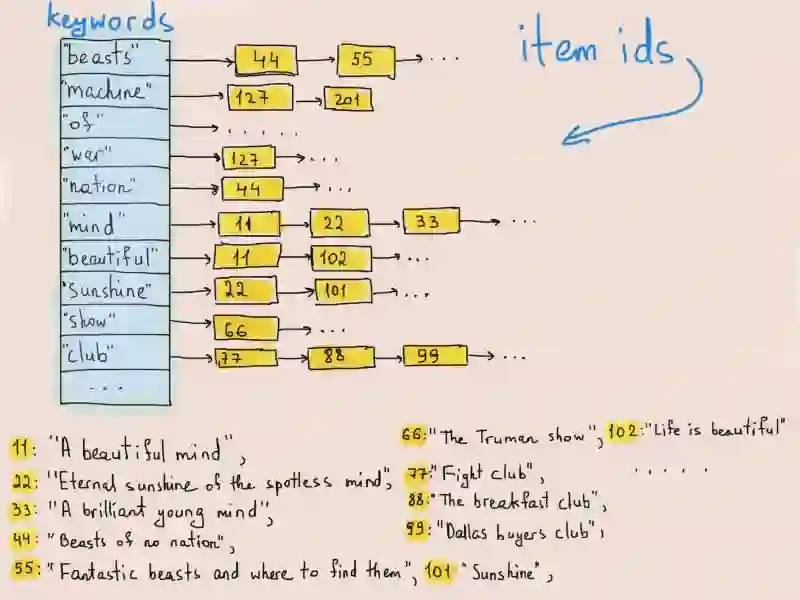 keywords
item ids
"beasts" 44 55 ...
"machine" 127 201
"of" ......
"war" 127 ...
"nation" 44 ...
"mind" 11 22 33 ...
"beautiful" 11 102 ...
"sunshine" 22 101 ...
"show" 66 ...
"club" 77 88 99 ...
...
11: "A beautiful mind",
22: "Eternal sunshine of the spotless mind",
33: "A brilliant young mind",
44: "Beasts of no nation",
55: "Fantastic beasts and where to find them", 101 "Sunshine",
66: "The Truman show", 102: "Life is beautiful"
77: "Fight club", .....
88: "The breakfast club",
99: "Dallas buyers club",